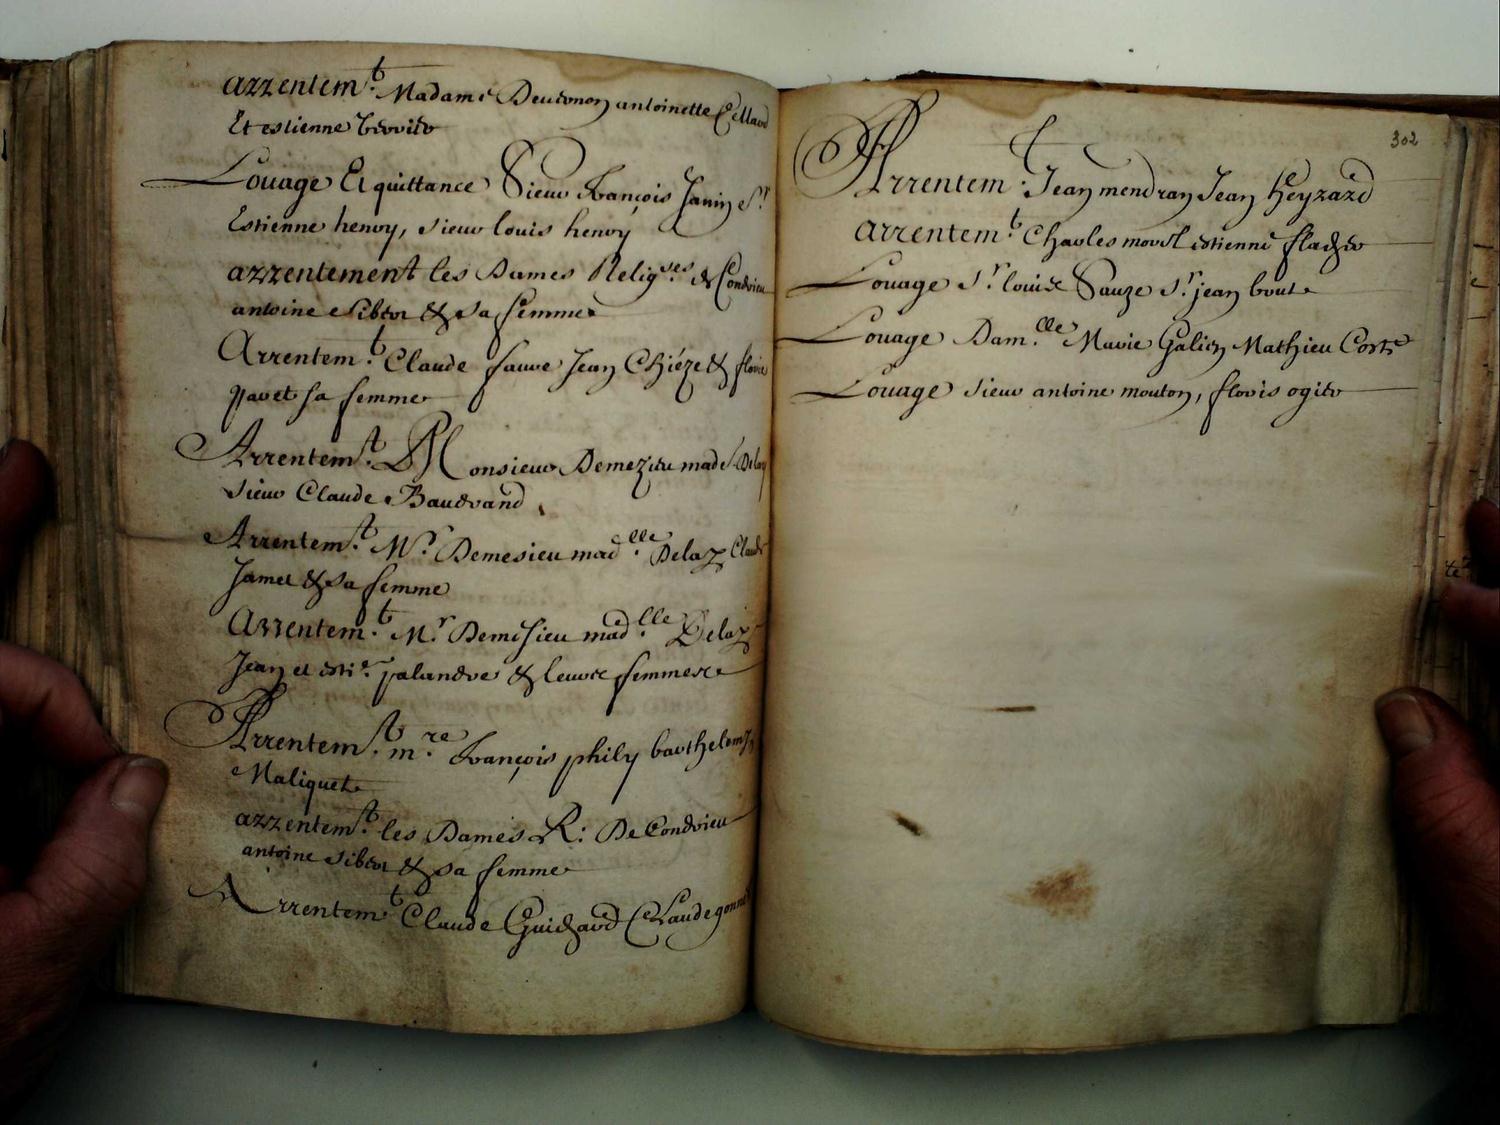 arrentem.t Madame Deutonon antoinette Cellard
Et estienne
Louage Et quittance Sieur François Janin Sr
Estienne henry, sieur louis henry
arrentement les Dames Religses de Condrieu
antoine Sibert & sa femme
Arrentem.t Claude fauve Jean Chiéze & florie
pavet sa femme
Arrentem.t Monsieur Demezieu made. Delay
sieur Claude Baudrand
Arrentem.t Mr. Demesieu madlle Delaz Claude
Jamet & sa femme
Arrentem.t Mr. Demisieu madlle Delaz
Jean et esti.e palandre & leurs femmes
Arrentem.t m.re François phily barthelemy
Maliquet
arrentem.t les Dames R: De Condrieu
antoine Sibert & sa femme
Arrentem.t Claude Guichard Claude gonnet
302
Arrentem.t Jean mendran Jean Heyrard
arrentem.t Charles morel estienne flacher
Louage Sr. louis Sauze Sr. jean boute
Louage Dam.lle Marie Galien Mathieu Coste
Louage sieur antoine mouton, floris ogier